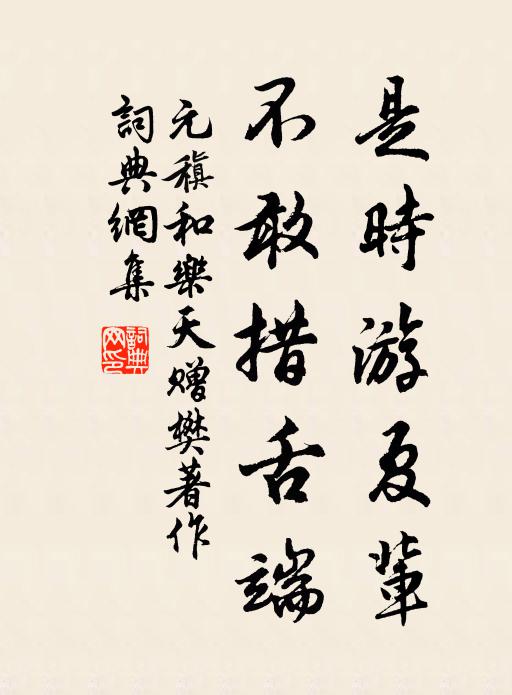 是時游夏輩
不敢措舌端
元稹和樂天贈樊著作
詞典網集
詞典
网印